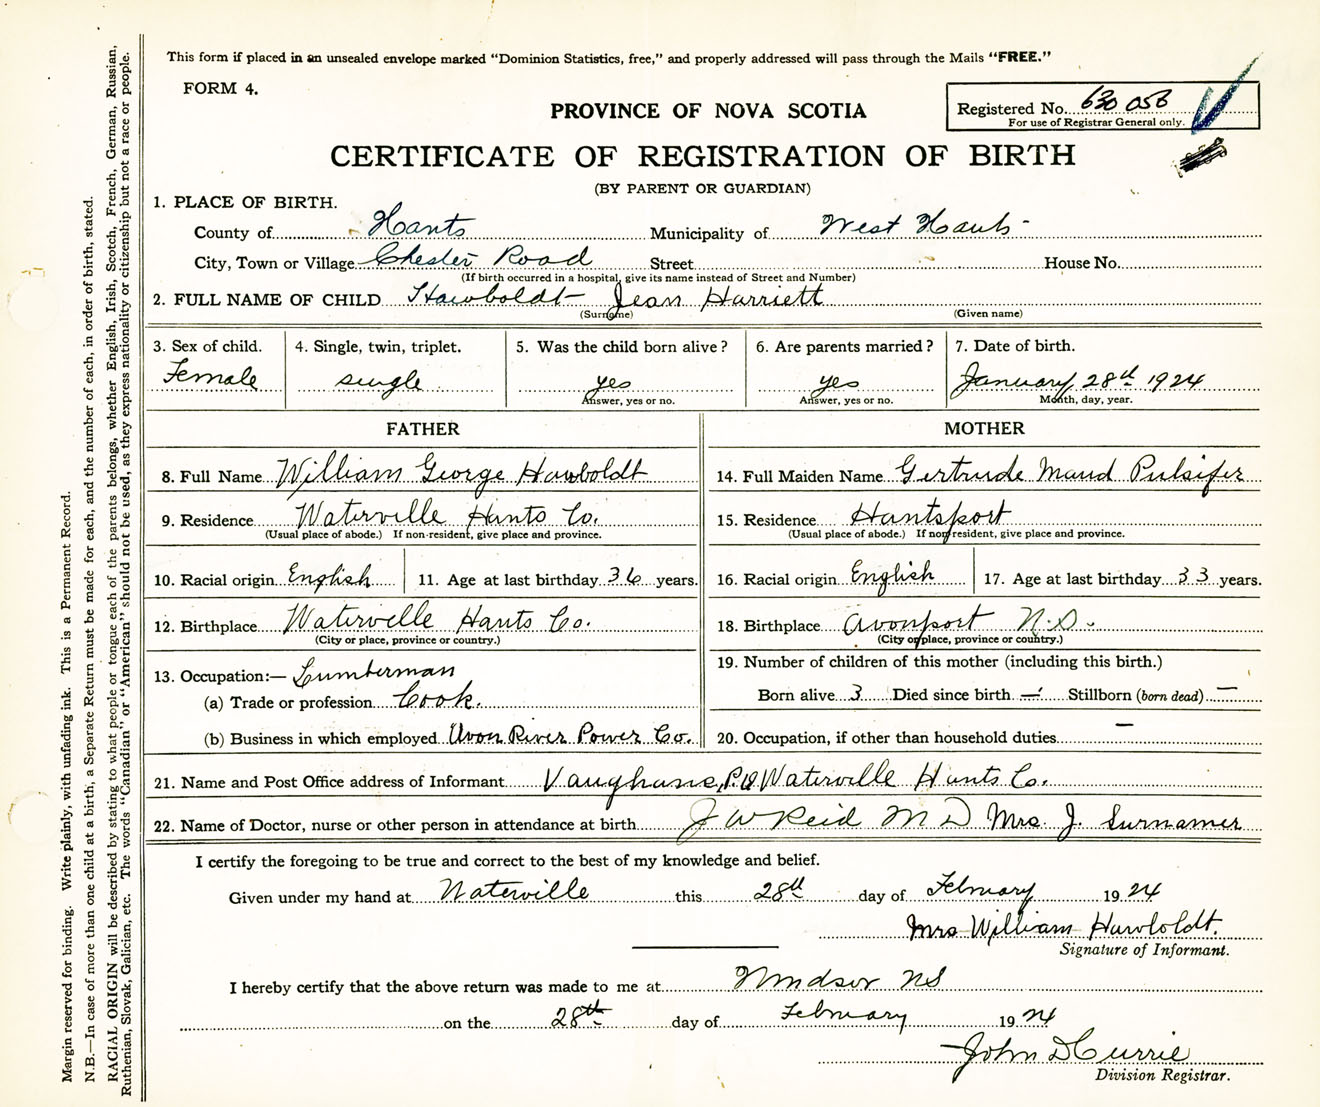 This form if placed in an unsealed envelope marked “Dominion Statistics, free,” and properly addressed will pass through the Mails “FREE.”
FORM 4.
PROVINCE OF NOVA SCOTIA
Registered No. 630 056
For use of Registrar General only.
CERTIFICATE OF REGISTRATION OF BIRTH
(BY PARENT OR GUARDIAN)
1. PLACE OF BIRTH.
County of Hants Municipality of West Hants -
City, Town or Village Chester Road Street House No.
(If birth occurred in a hospital, give its name instead of Street and Number)
2. FULL NAME OF CHILD Hawboldt Jean Harriett
(Surname) (Given name)
3. Sex of child. 4. Single, twin, triplet. 5. Was the child born alive? 6. Are parents married? 7. Date of birth.
Female single yes yes January 28th 1924
Answer, yes or no. Answer, yes or no. Month, day, year.
FATHER MOTHER
8. Full Name William George Hawboldt 14. Full Maiden Name Gertrude Maud Pulsifer
9. Residence Waterville Hants Co. 15. Residence Hantsport
(Usual place of abode.) If non-resident, give place and province. (Usual place of abode.) If non-resident, give place and province.
10. Racial origin English 11. Age at last birthday 36 years. 16. Racial origin English 17. Age at last birthday 33 years.
12. Birthplace Waterville Hants Co. 18. Birthplace Avonport N.S.
(City or place, province or country.) (City or place, province or country.)
13. Occupation:— Lumberman 19. Number of children of this mother (including this birth.)
(a) Trade or profession Cook. Born alive 3 Died since birth — Stillborn (born dead) —
(b) Business in which employed Avon River Power Co. 20. Occupation, if other than household duties —
21. Name and Post Office address of Informant Vaughans, P.O Waterville Hants Co.
22. Name of Doctor, nurse or other person in attendance at birth J W Reid M D Mrs. J.
I certify the foregoing to be true and correct to the best of my knowledge and belief.
Given under my hand at Waterville this 28th day of February 1924
Mrs William Hawboldt.
Signature of Informant.
I hereby certify that the above return was made to me at Windsor NS
on the 28th day of February 1924
John D Currie
Division Registrar.
Margin reserved for binding. Write plainly, with unfading ink. This is a Permanent Record.
N.B.—In case of more than one child at a birth, a Separate Return must be made for each, and the number of each, in order of birth, stated.
RACIAL ORIGIN will be described by stating to what people or tongue each of the parents belongs, whether English, Irish, Scotch, French, German, Russian,
Ruthenian, Slovak, Galician, etc. The words “Canadian” or “American” should not be used, as they express nationality or citizenship but not a race or people.